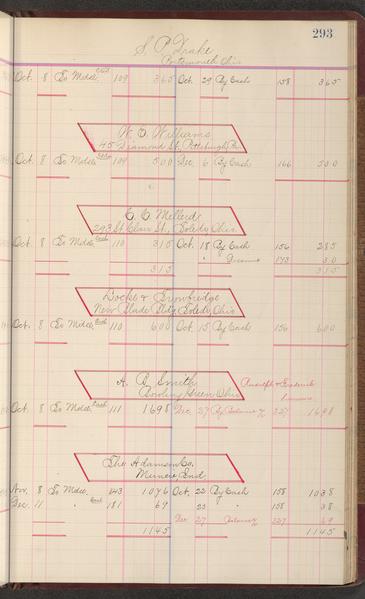 293
S. P. Drake
Portsmouth Ohio
Oct. 8 To Mdse 109 3 65 Oct. 29 By Cash 158 3 65
W. E. Williams
45 Diamond St., Pittsburgh, Pa.
Oct. 8 To Mdse 109 5 00 Dec. 6 By Cash 166 5 00
293 St. Clair St., Toledo, Ohio
Oct. 8 To Mdse 110 3 15 Oct. 18 By Cash 156 2 85
" 173 3 0
3 15 3 15
Locke & Trowbridge
Bldg. Toledo, Ohio
Oct. 8 To Mdse. 110 6 00 Oct. 15 By Cash 156 6 00
A. B. Smith
Bowling Green Ohio
Oct. 8 To Mdse 111 16 98 Dec. 27 By Balance 227 16 98
The Adamson Co.
Muncie, Ind.
Nov. 8 To Mdse 143 10 76 Oct. 22 By Cash 158 10 38
Dec. 11 " 181 69 22 " 158 38
Dec 27 Balance 227 69
11 45 11 45